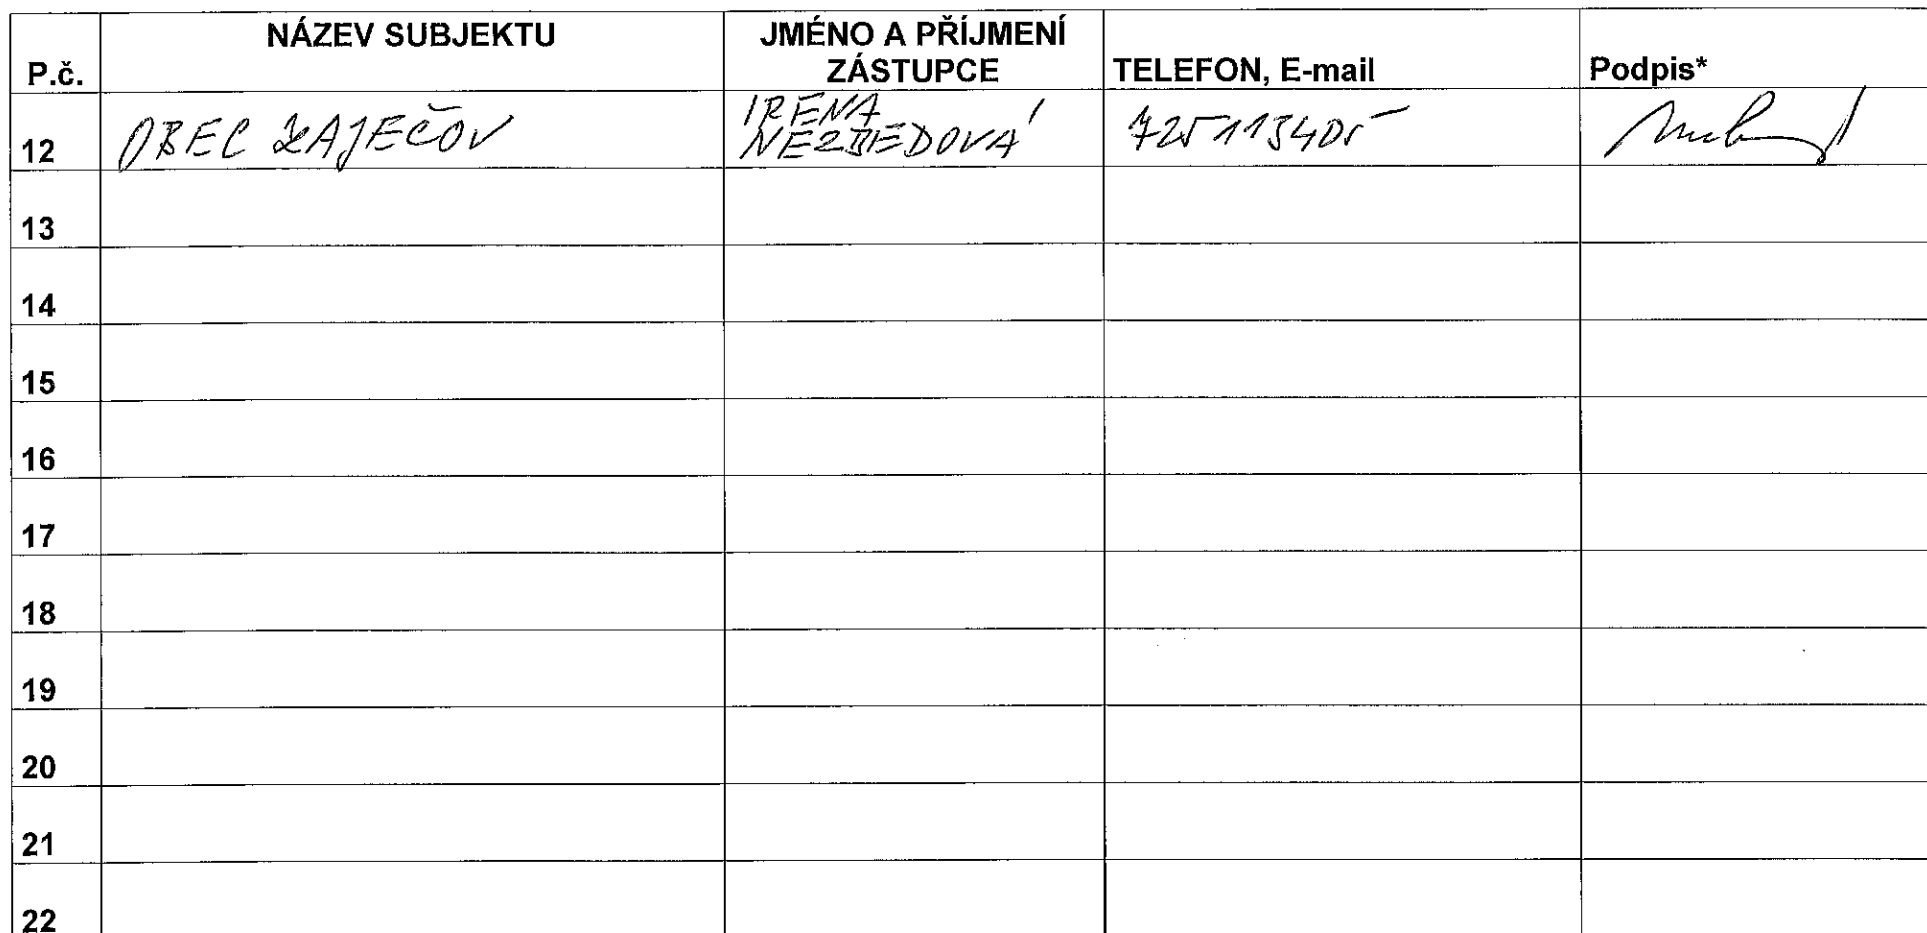 NÁZEV SUBJEKTU
JMÉNO A PŘÍJMENÍ
ZÁSTUPCE
P.č.
TELEFON, E-mail
Podpis*
12
OBEC ZAJEČOV
IRENA
NEZBEDOVÁ
725113405
13
14
15
16
17
18
19
20
21
22